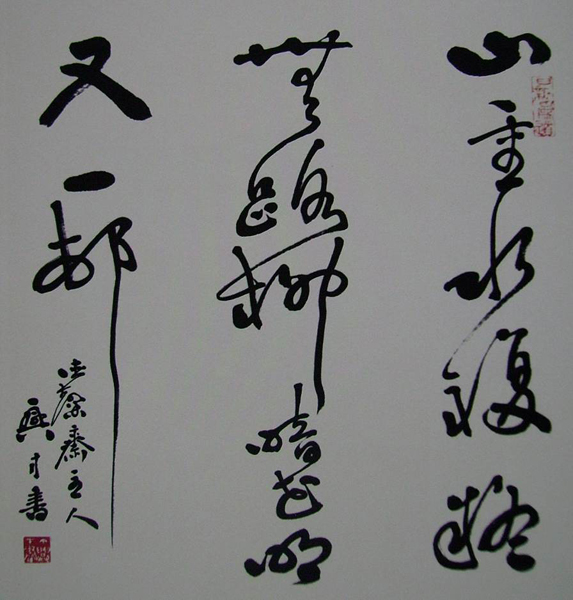 山重水複疑
無路柳暗花明
又一邨
齋主人
興才書